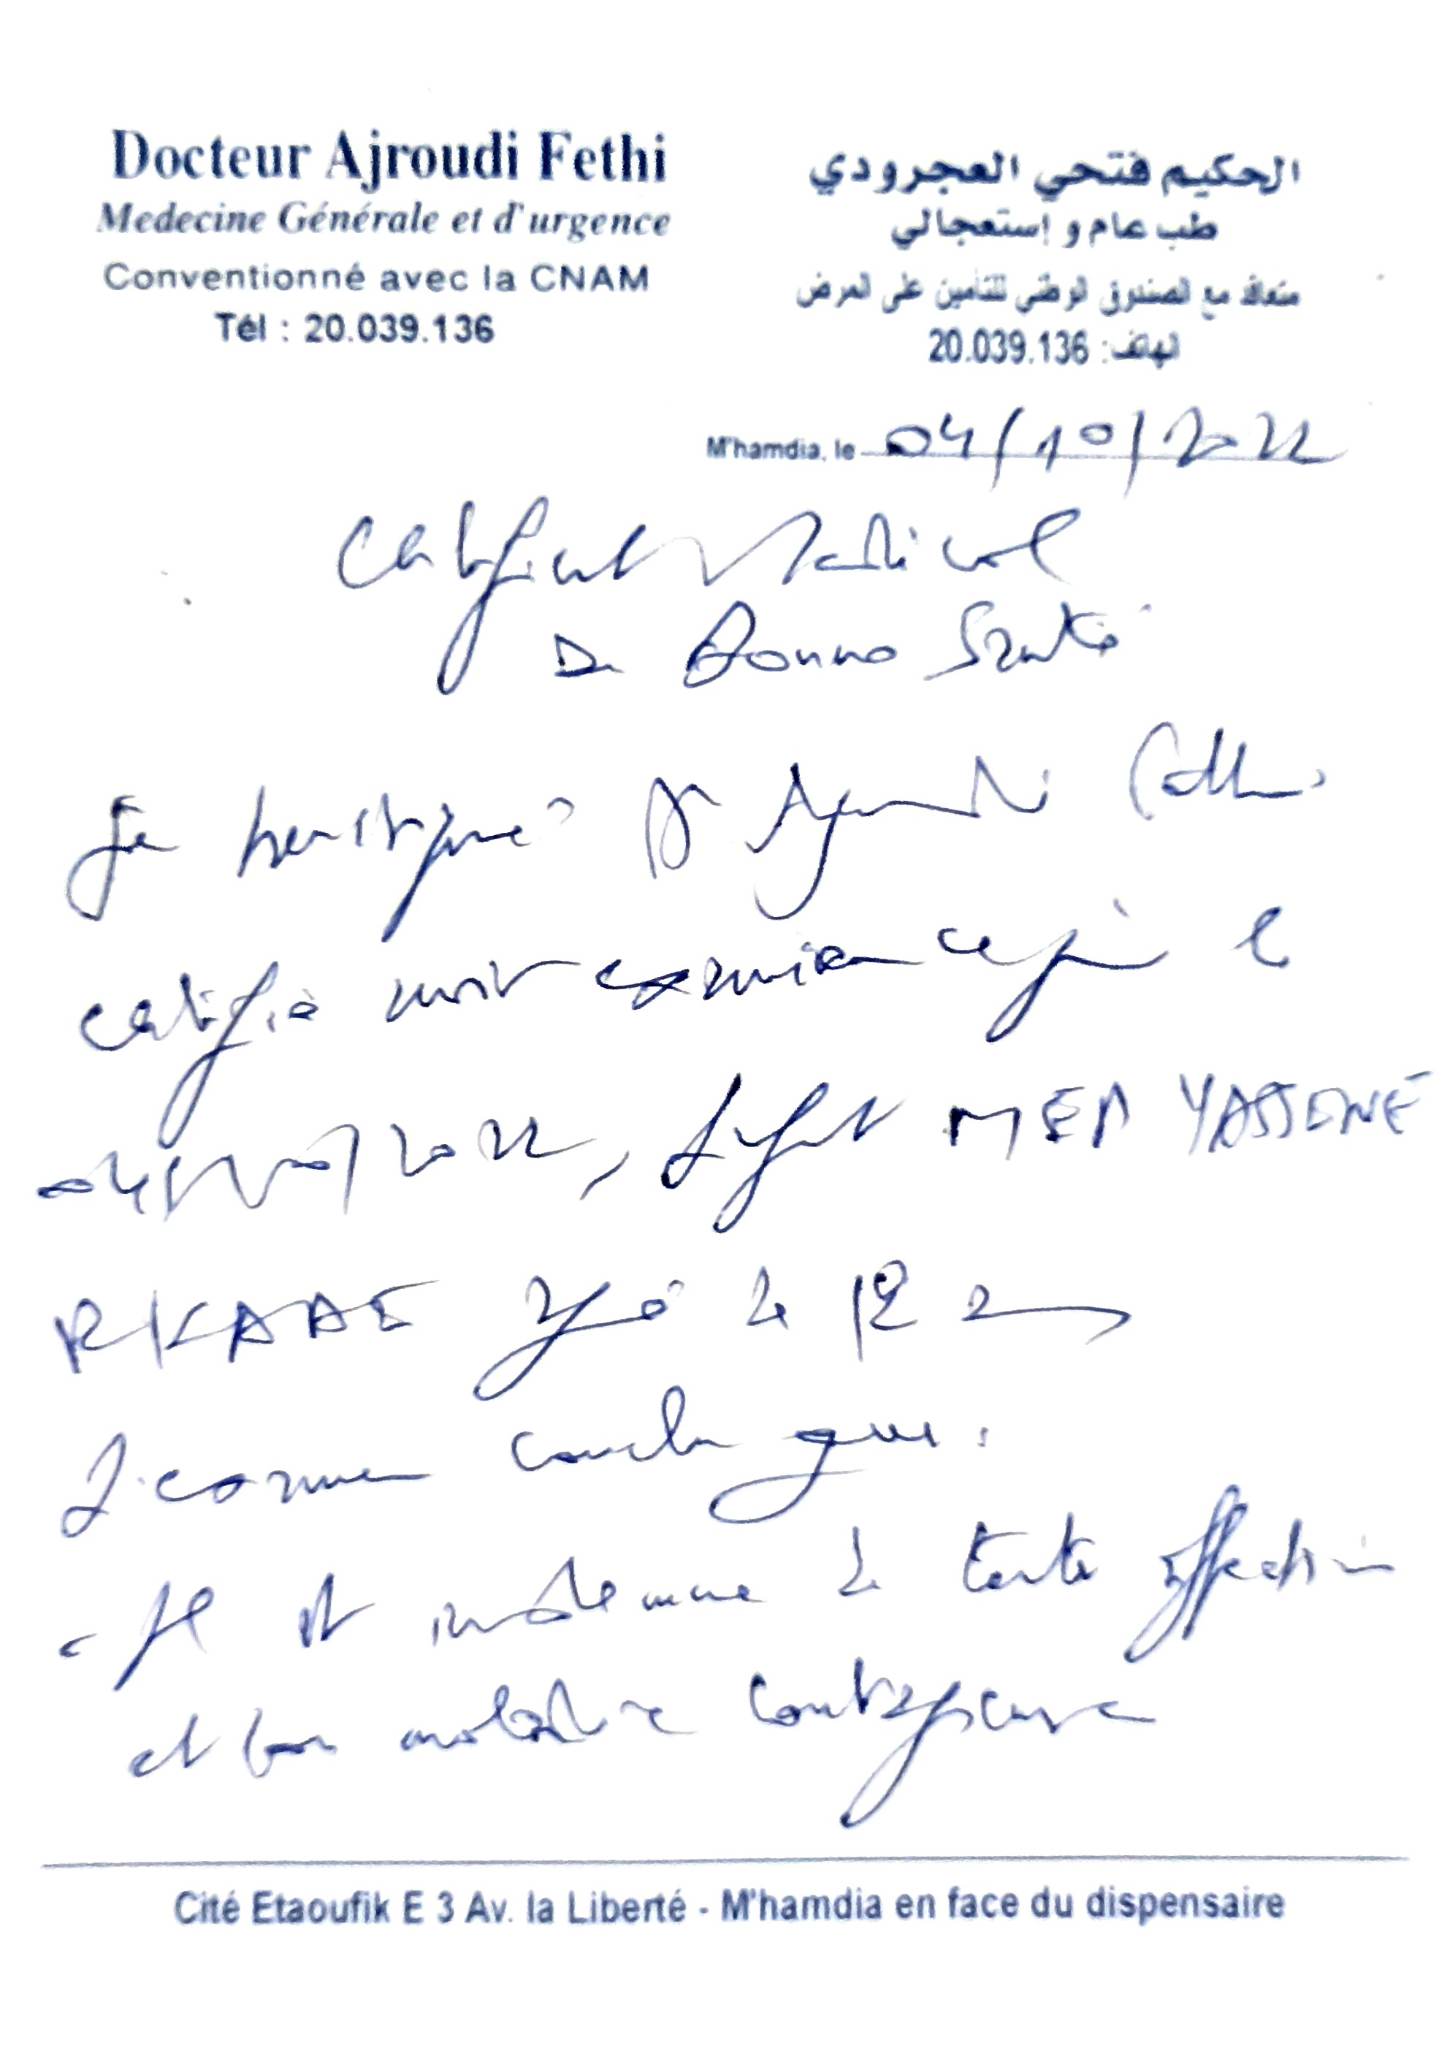 Docteur Ajroudi Fethi
Medecine Générale et d'urgence
Conventionné avec la CNAM
Tél : 20.039.136
الحكيم فتحي العجرودي
طب عام و إستعجالي
متعاقد مع الصندوق الوطني للتأمين على المرض
الهاتف: 20.039.136
M'hamdia, le 04/10/2022
Certificat Médical
De Bonne Santé
Je soussigné Dr Ajroudi Fethi
certifie avoir examiné ce jour le
04/10/2022, l'enfant MED YASSINE
âgé de 12 ans
L'examen conclu que :
- Il est indemne de toute affection
et ou maladie contagieuse
Cité Etaoufik E 3 Av. la Liberté - M'hamdia en face du dispensaire